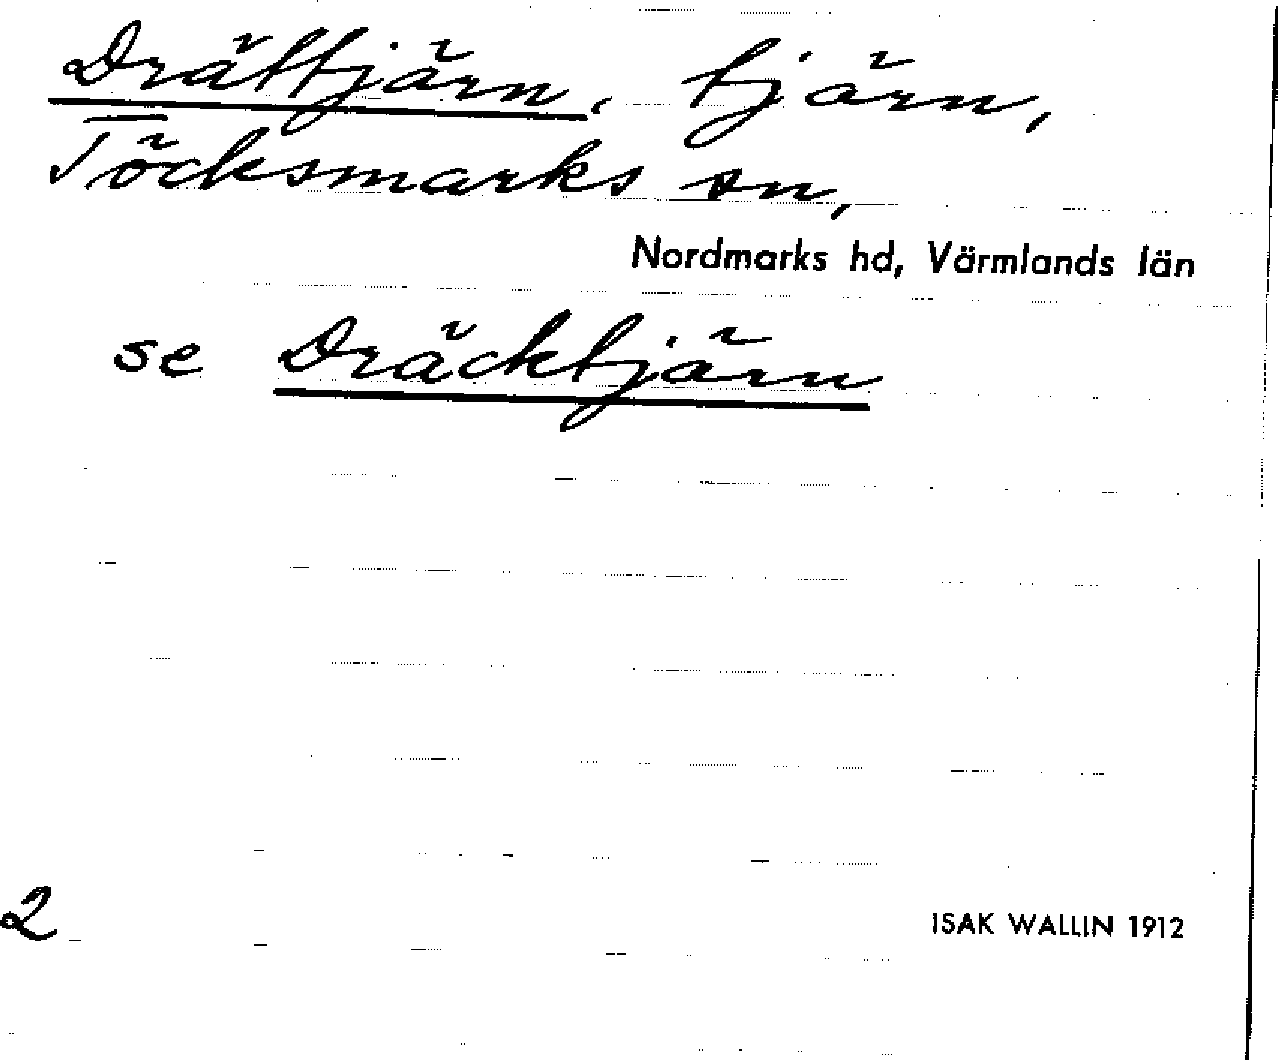 Drättjärn, tjärn,
Töcksmarks sn,
Nordmarks hd, Värmlands län
se Dräcktjärn
2
ISAK WALLIN 1912